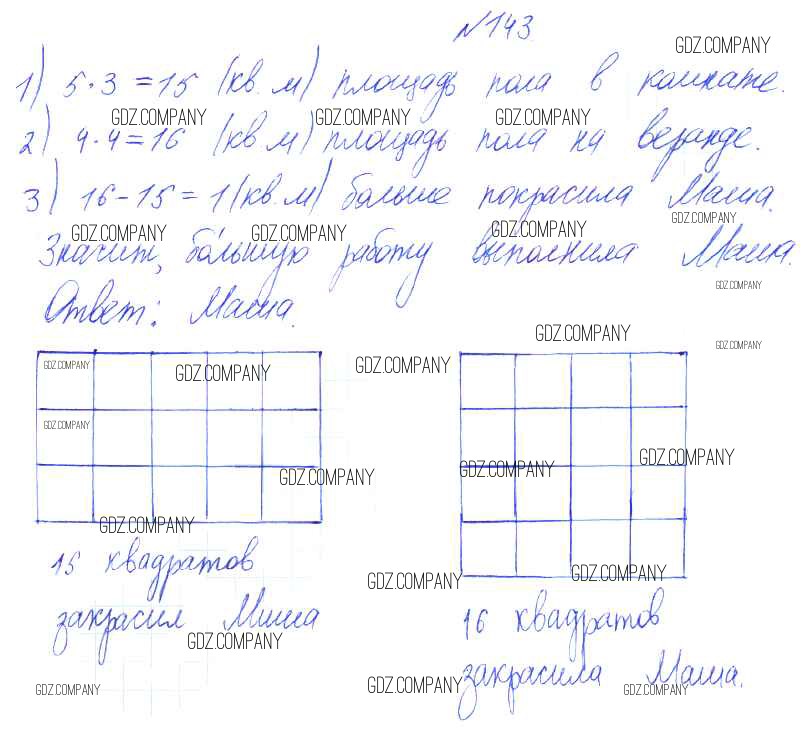 №143
GDZ.COMPANY
1) 5·3=15 (кв. м) площадь пола в комнате.
GDZ.COMPANY GDZ.COMPANY GDZ.COMPANY
2) 4·4=16 (кв м) площадь пола на веранде.
3) 16-15=1 (кв. м) больше покрасила Маша.
GDZ.COMPANY GDZ.COMPANY GDZ.COMPANY GDZ.COMPANY
Значит, бо́льшую работу выполнила Маша.
GDZ.COMPANY
Ответ: Маша.
GDZ.COMPANY GDZ.COMPANY
GDZ.COMPANY GDZ.COMPANY GDZ.COMPANY
GDZ.COMPANY
GDZ.COMPANY GDZ.COMPANY GDZ.COMPANY
GDZ.COMPANY
15 квадратов
GDZ.COMPANY GDZ.COMPANY
закрасил Миша
GDZ.COMPANY
16 квадратов
закрасила Маша.
GDZ.COMPANY GDZ.COMPANY GDZ.COMPANY